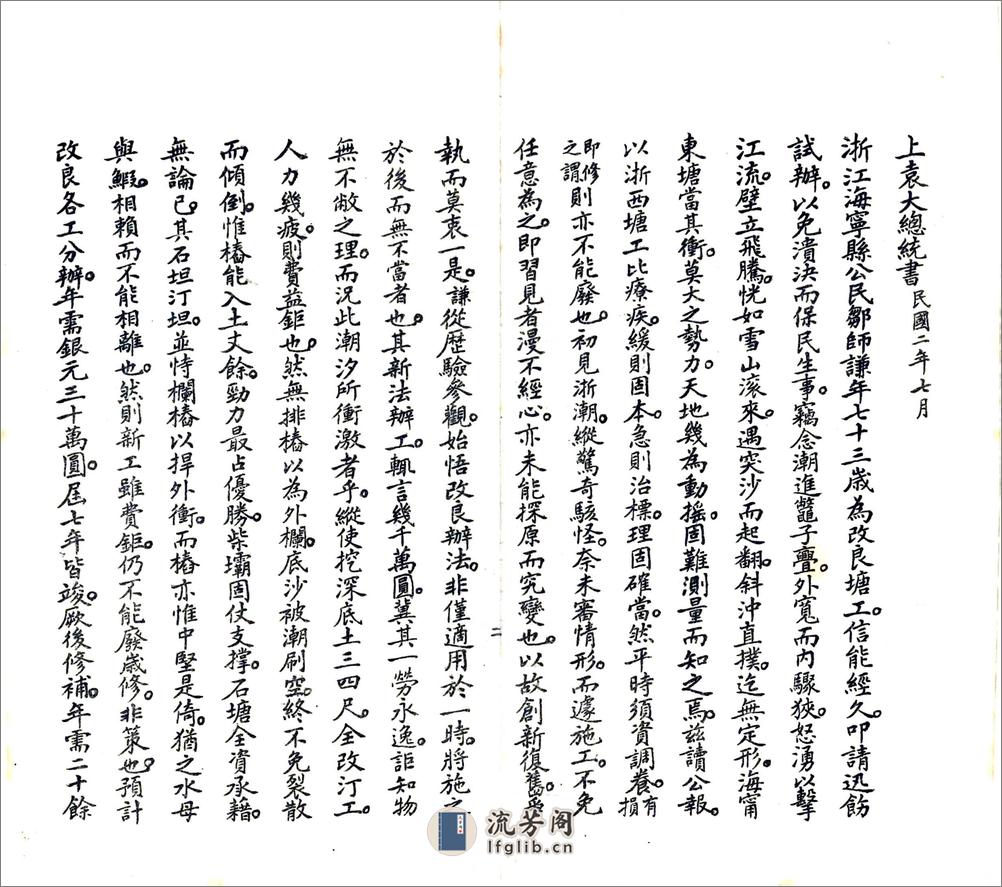 上袁大總統書 民國二年七月
浙江海寧縣公民鄒師謙年七十三歲為改良塘工。信能經久。叩請迅飭
試辦。以免潰決而保民生事。竊念潮進鼈子亹。外寬而內驟狹。怒湧以擊
江流。壁立飛騰。恍如雪山滾來。遇突沙而起翻。斜沖直撲。迄無定形。海甯
東塘當其衝。莫大之勢力。天地幾為動搖。固難測量而知之焉。茲讀公報。
以浙西塘工比療疾。緩則固本。急則治標。理固確當。然平時須資調養。有損
即修之謂。則亦不能廢也。初見浙潮。縱驚奇駭怪。奈未審情形。而遽施工。不免
任意為之。即習見者漫不經心。亦未能探原而究變也。以故創新復舊。各
執而莫衷一是。謙從歷驗參觀。始悟改良辦法。非僅適用於一時。將施之
於後而無不當者也。其新法辦工。輒言幾千萬圓。冀其一勞永逸。詎知物
無不敝之理。而況此潮汐所衝激者乎。縱使挖深底土三四尺。全改汀工。
人力幾疲。則費益鉅也。然無排樁以為外欄。底沙被潮刷空。終不免裂散
而傾倒。惟樁能入土丈餘。勁力最占優勝。柴壩固仗支撐。石塘全資承藉。
無論已。其石坦汀坦。並恃欄樁以捍外衝。而樁亦惟中堅是倚。猶之水母
與鰕。相賴而不能相離也。然則新工雖費鉅。仍不能廢歲修。非策也。預計
改良各工分辦。年需銀元三十萬圓。屆七年皆竣。厥後修補。年需二十餘
二
流芳阁
lfglib.cn